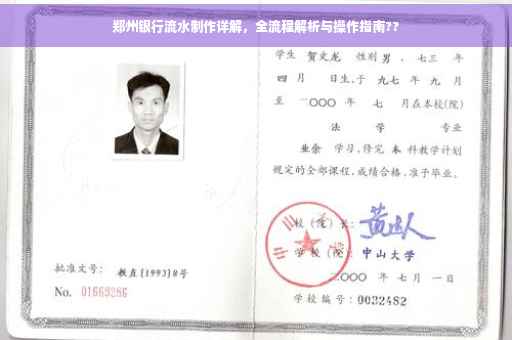 郑州银行流水制作详解，全流程解析与操作指南??
学生 贺文龙 性别 男，七三 年
四 月 日生，于 九七 年 九 月
至 二〇〇〇 年 七 月在本校(院)
法 学 专业
业余 学习，修完 本 科教学计划
规定的全部课程，成绩合格，准予毕业。
校（院）长：
学校（院）：中山大学
二〇〇〇 年 七 月 一日
学校编号：0032482
批准文号：教直[1993]8号
No. 01669286